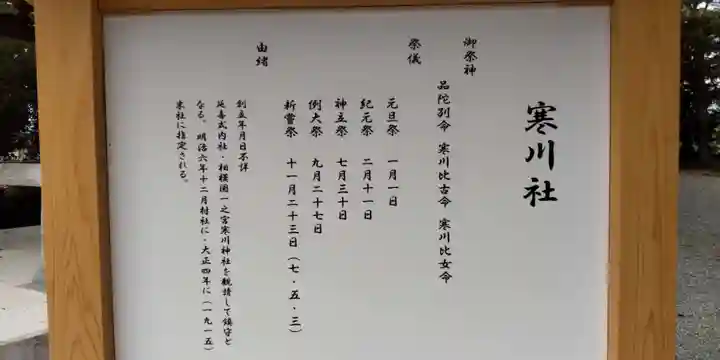 寒川社
御祭神
品陀別命 寒川比古命 寒川比女命
祭儀
元旦祭 一月一日
紀元祭 二月十一日
神立祭 七月三十日
例大祭 九月二十七日
新嘗祭 十一月二十三日(七・五・三)
由緒
創立年月日不詳
延喜式内社・相模国一之宮寒川神社を観請して鎮守と
なる。明治六年十二月村社に・大正四年に(一九一五)
末社に指定される。